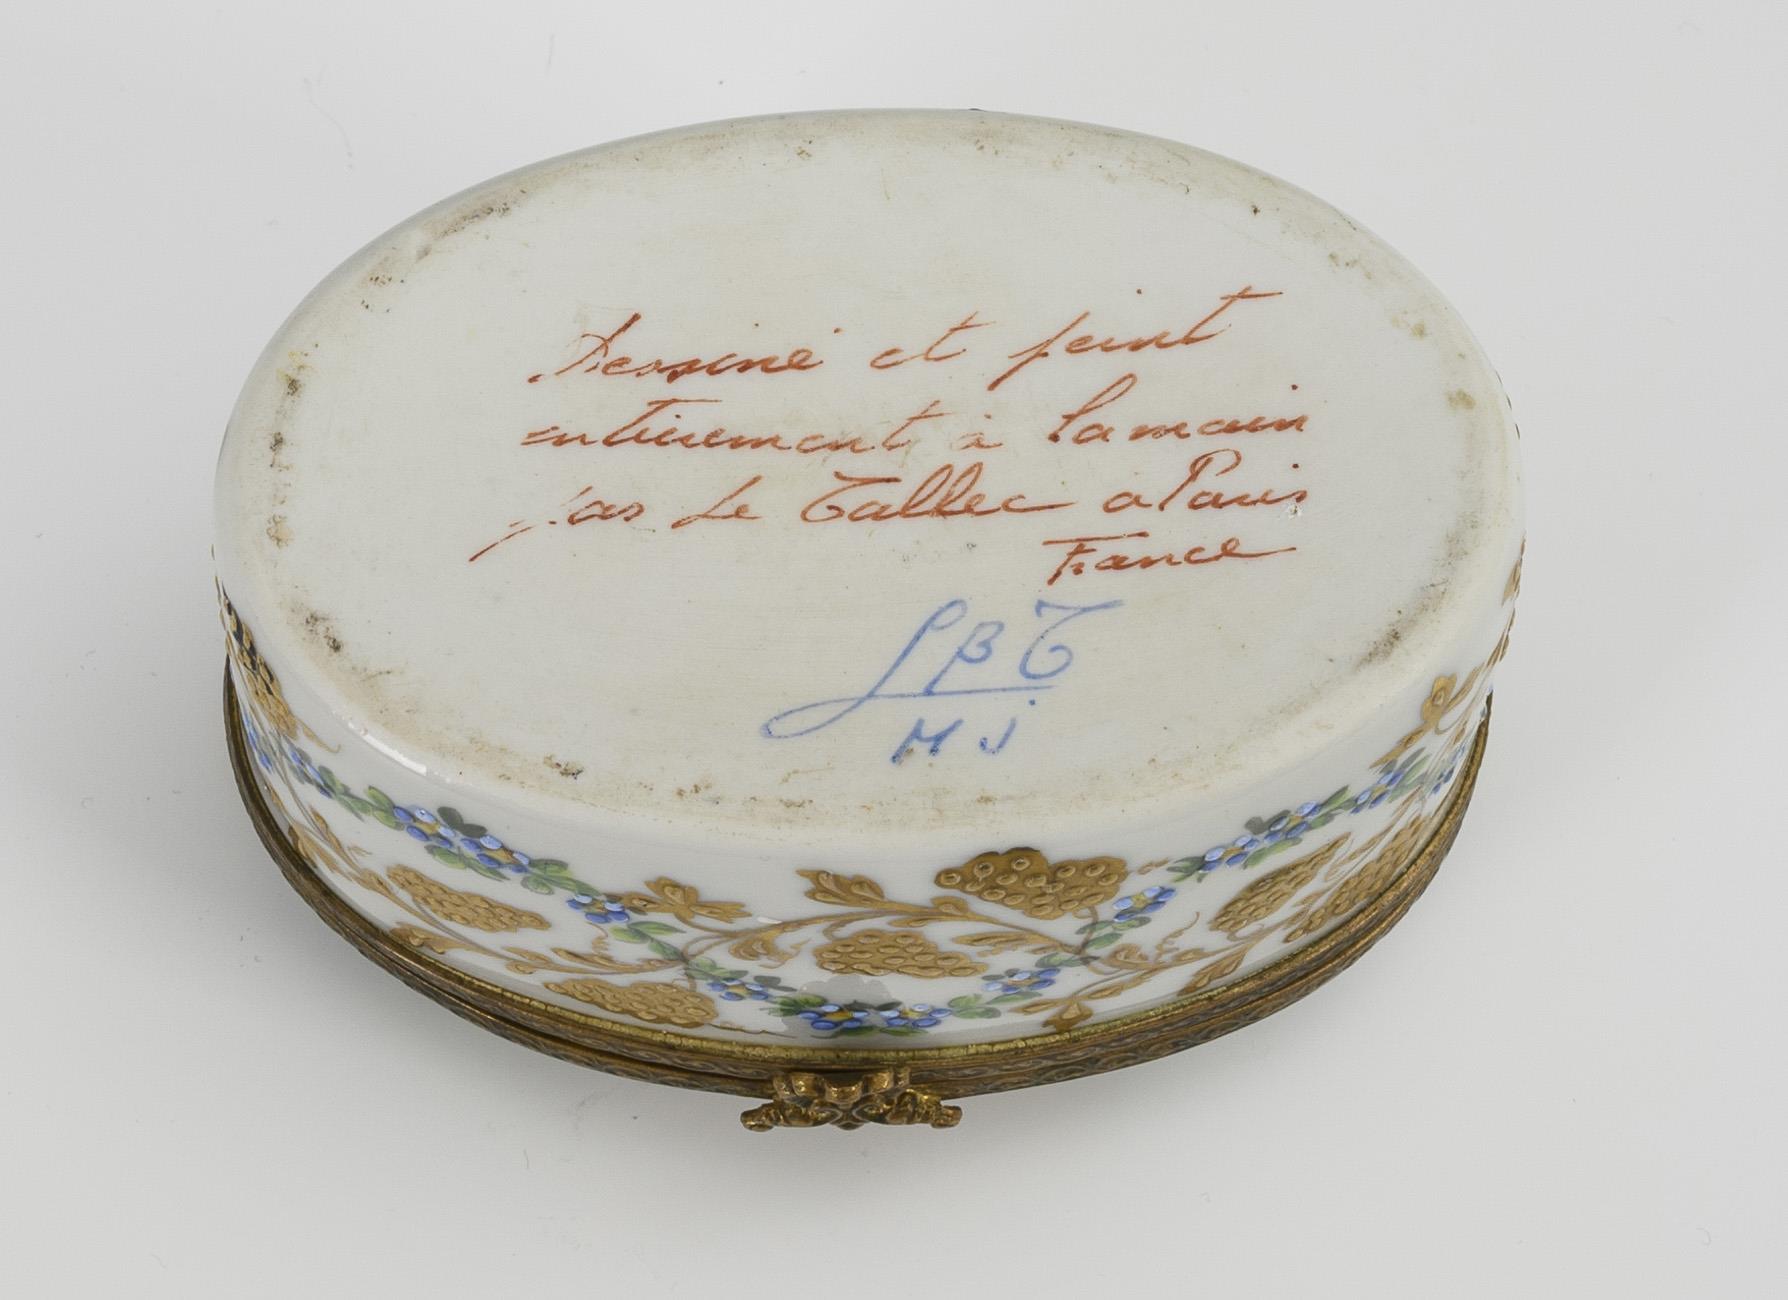 Dessiné et peint
entièrement à la main
par Le Tallec a Paris
France
LBT
MJ